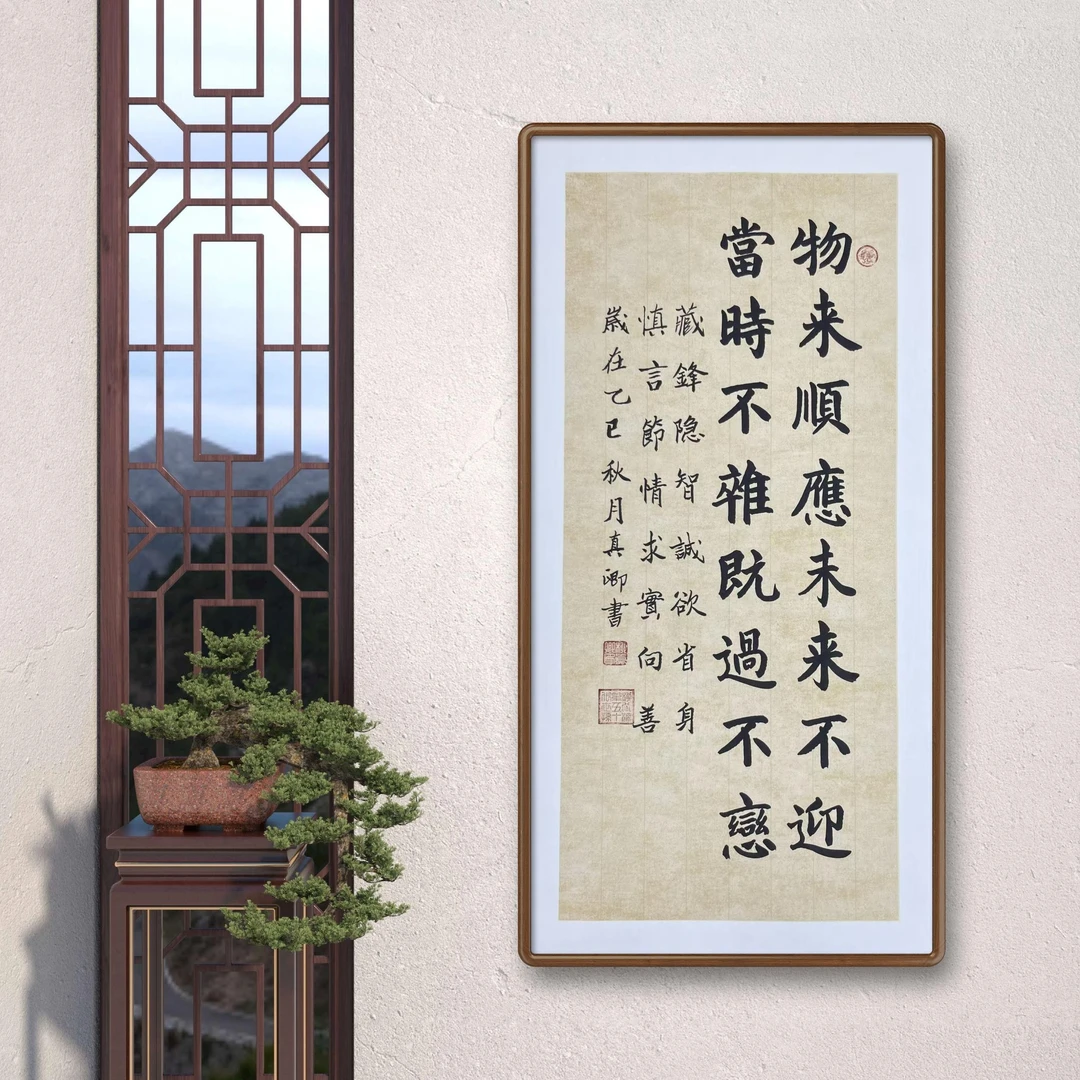 物来順應未来不迎
當時不雜既過不戀
藏鋒隐智誠欲省身
慎言節情求實向善
嵗在乙巳秋月真卿書